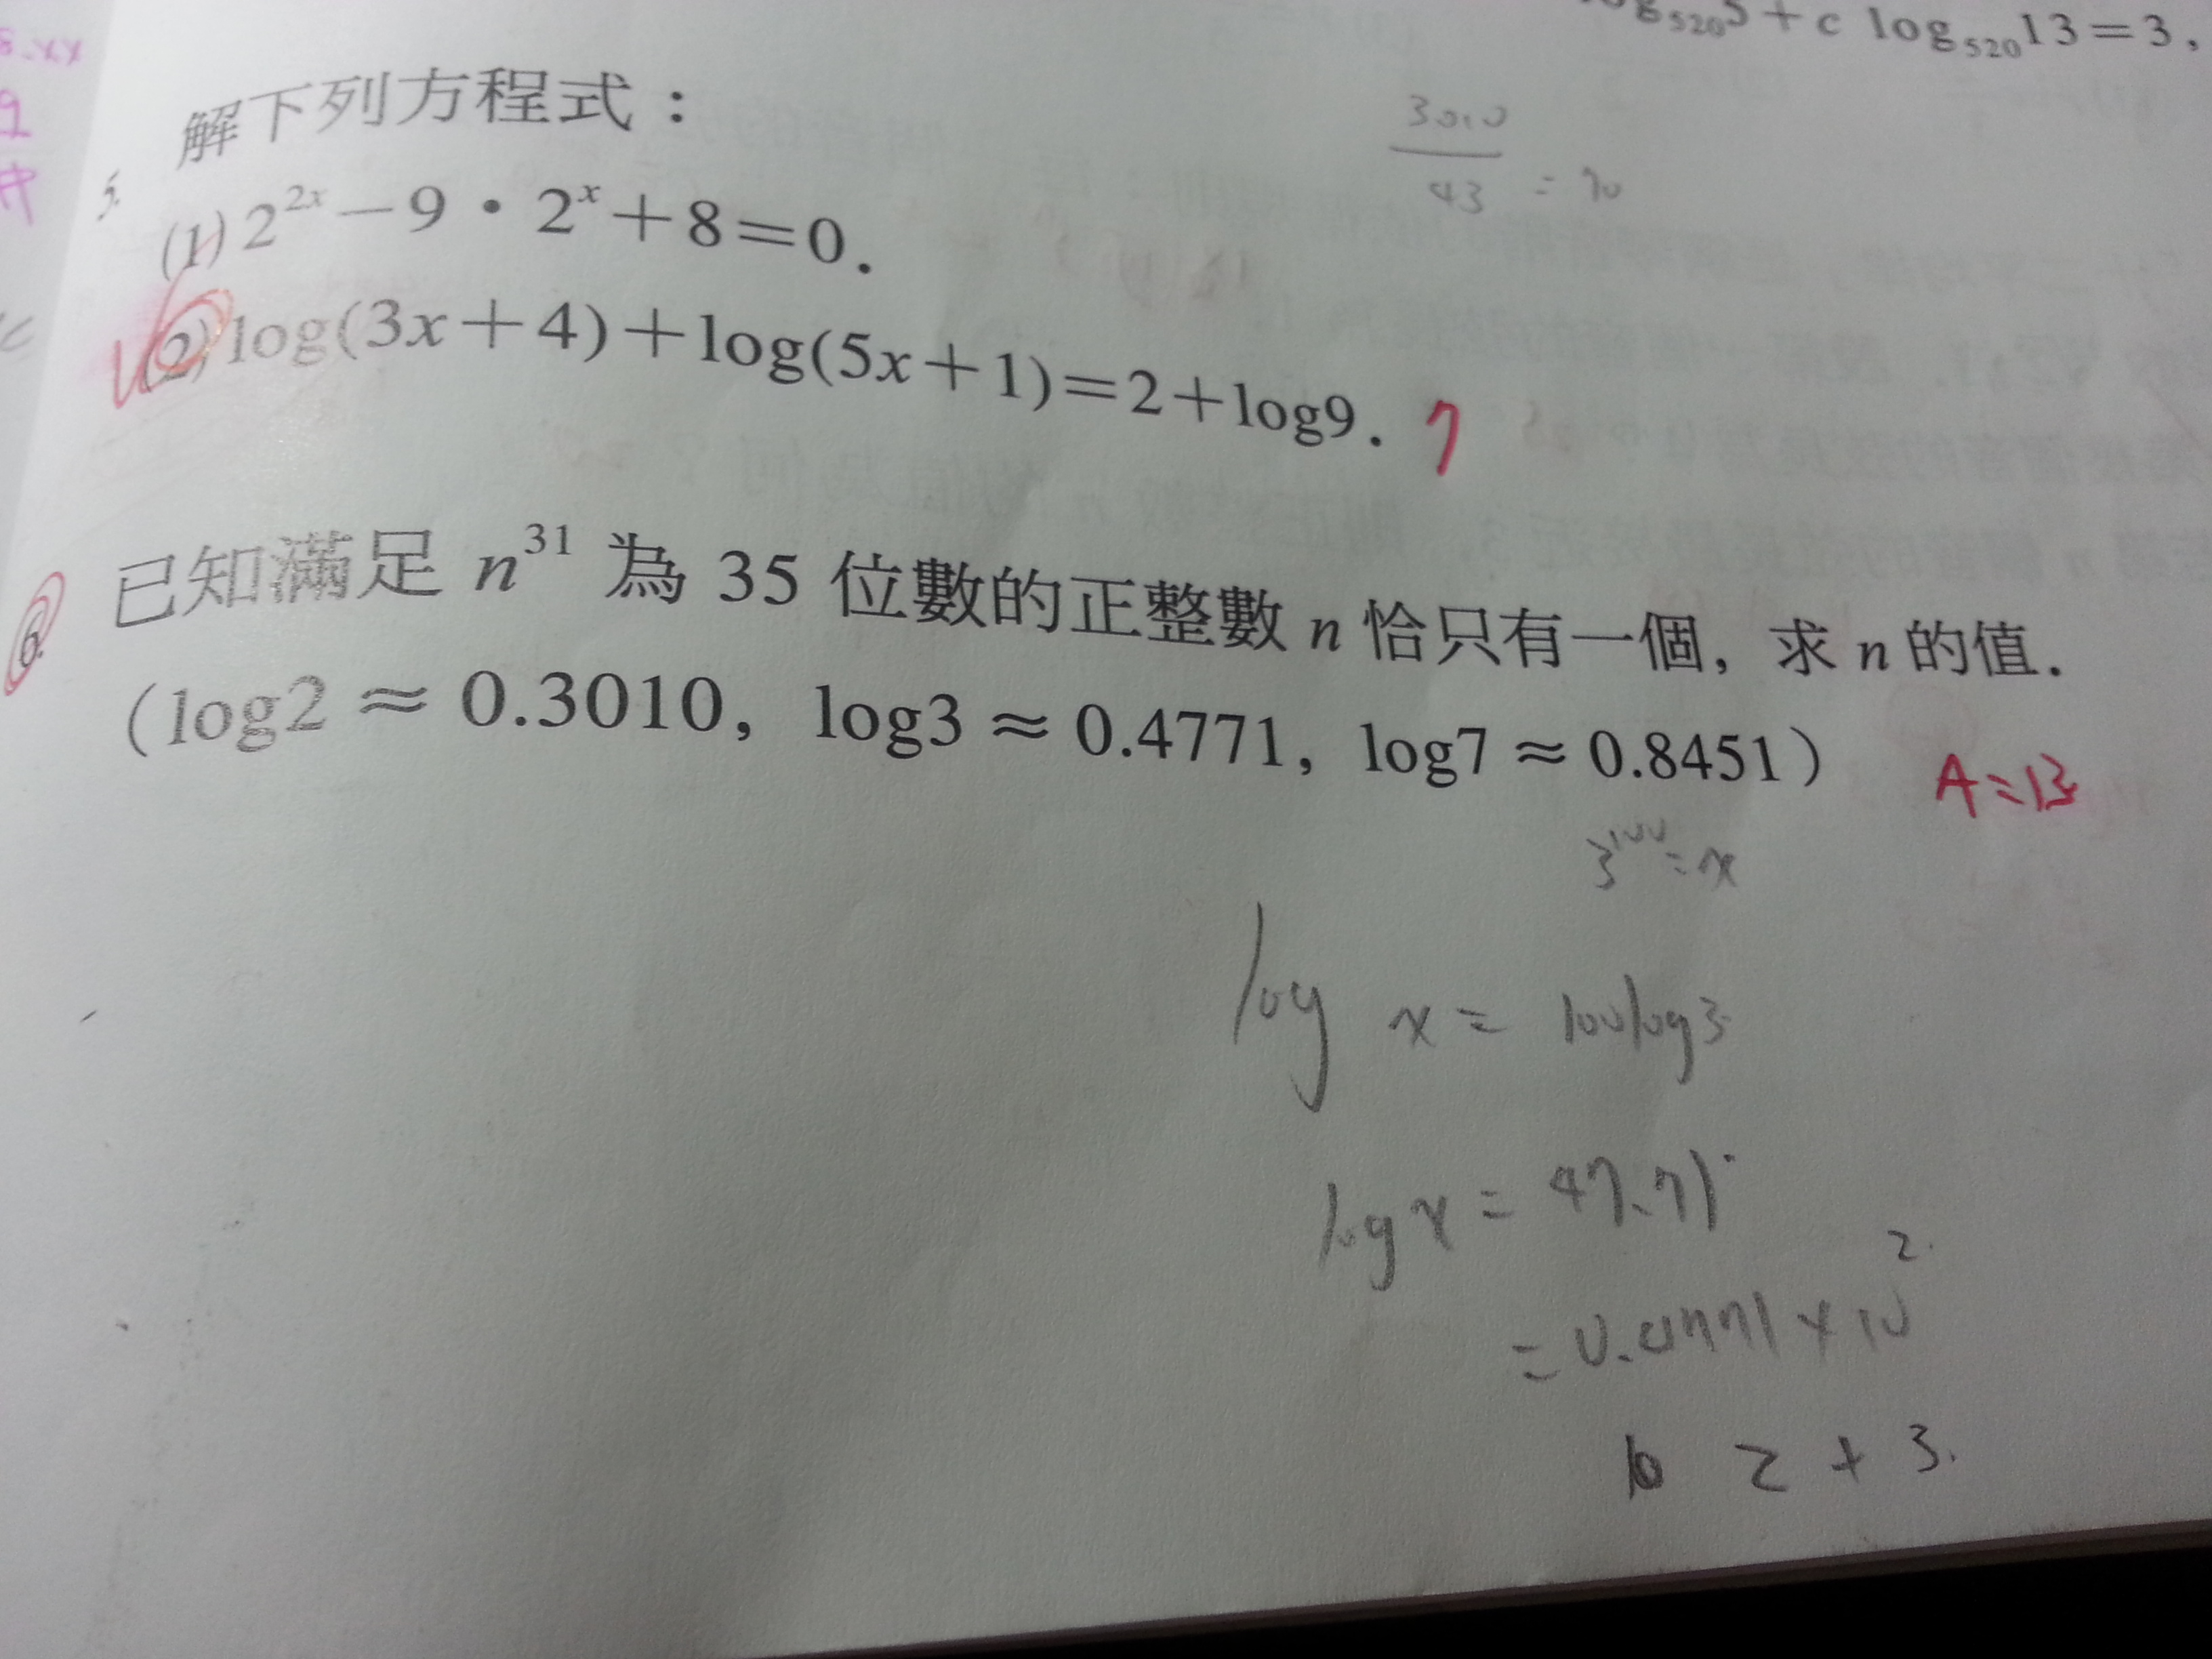 5+c log₅₂₀13=3,
解下列方程式：
3010
43 = 70
5.
(1) 2²ˣ－9・2ˣ＋8=0．
(2) log(3x＋4)＋log(5x＋1)=2＋log9． 7
6. 已知滿足 n³¹ 為 35 位數的正整數 n 恰只有一個，求 n 的值．
（log2 ≈ 0.3010，log3 ≈ 0.4771，log7 ≈ 0.8451）
A=13
3¹⁰⁰=x
log x = 100log3
log x = 47.71
= 0.4771 × 10²
2 + 3.